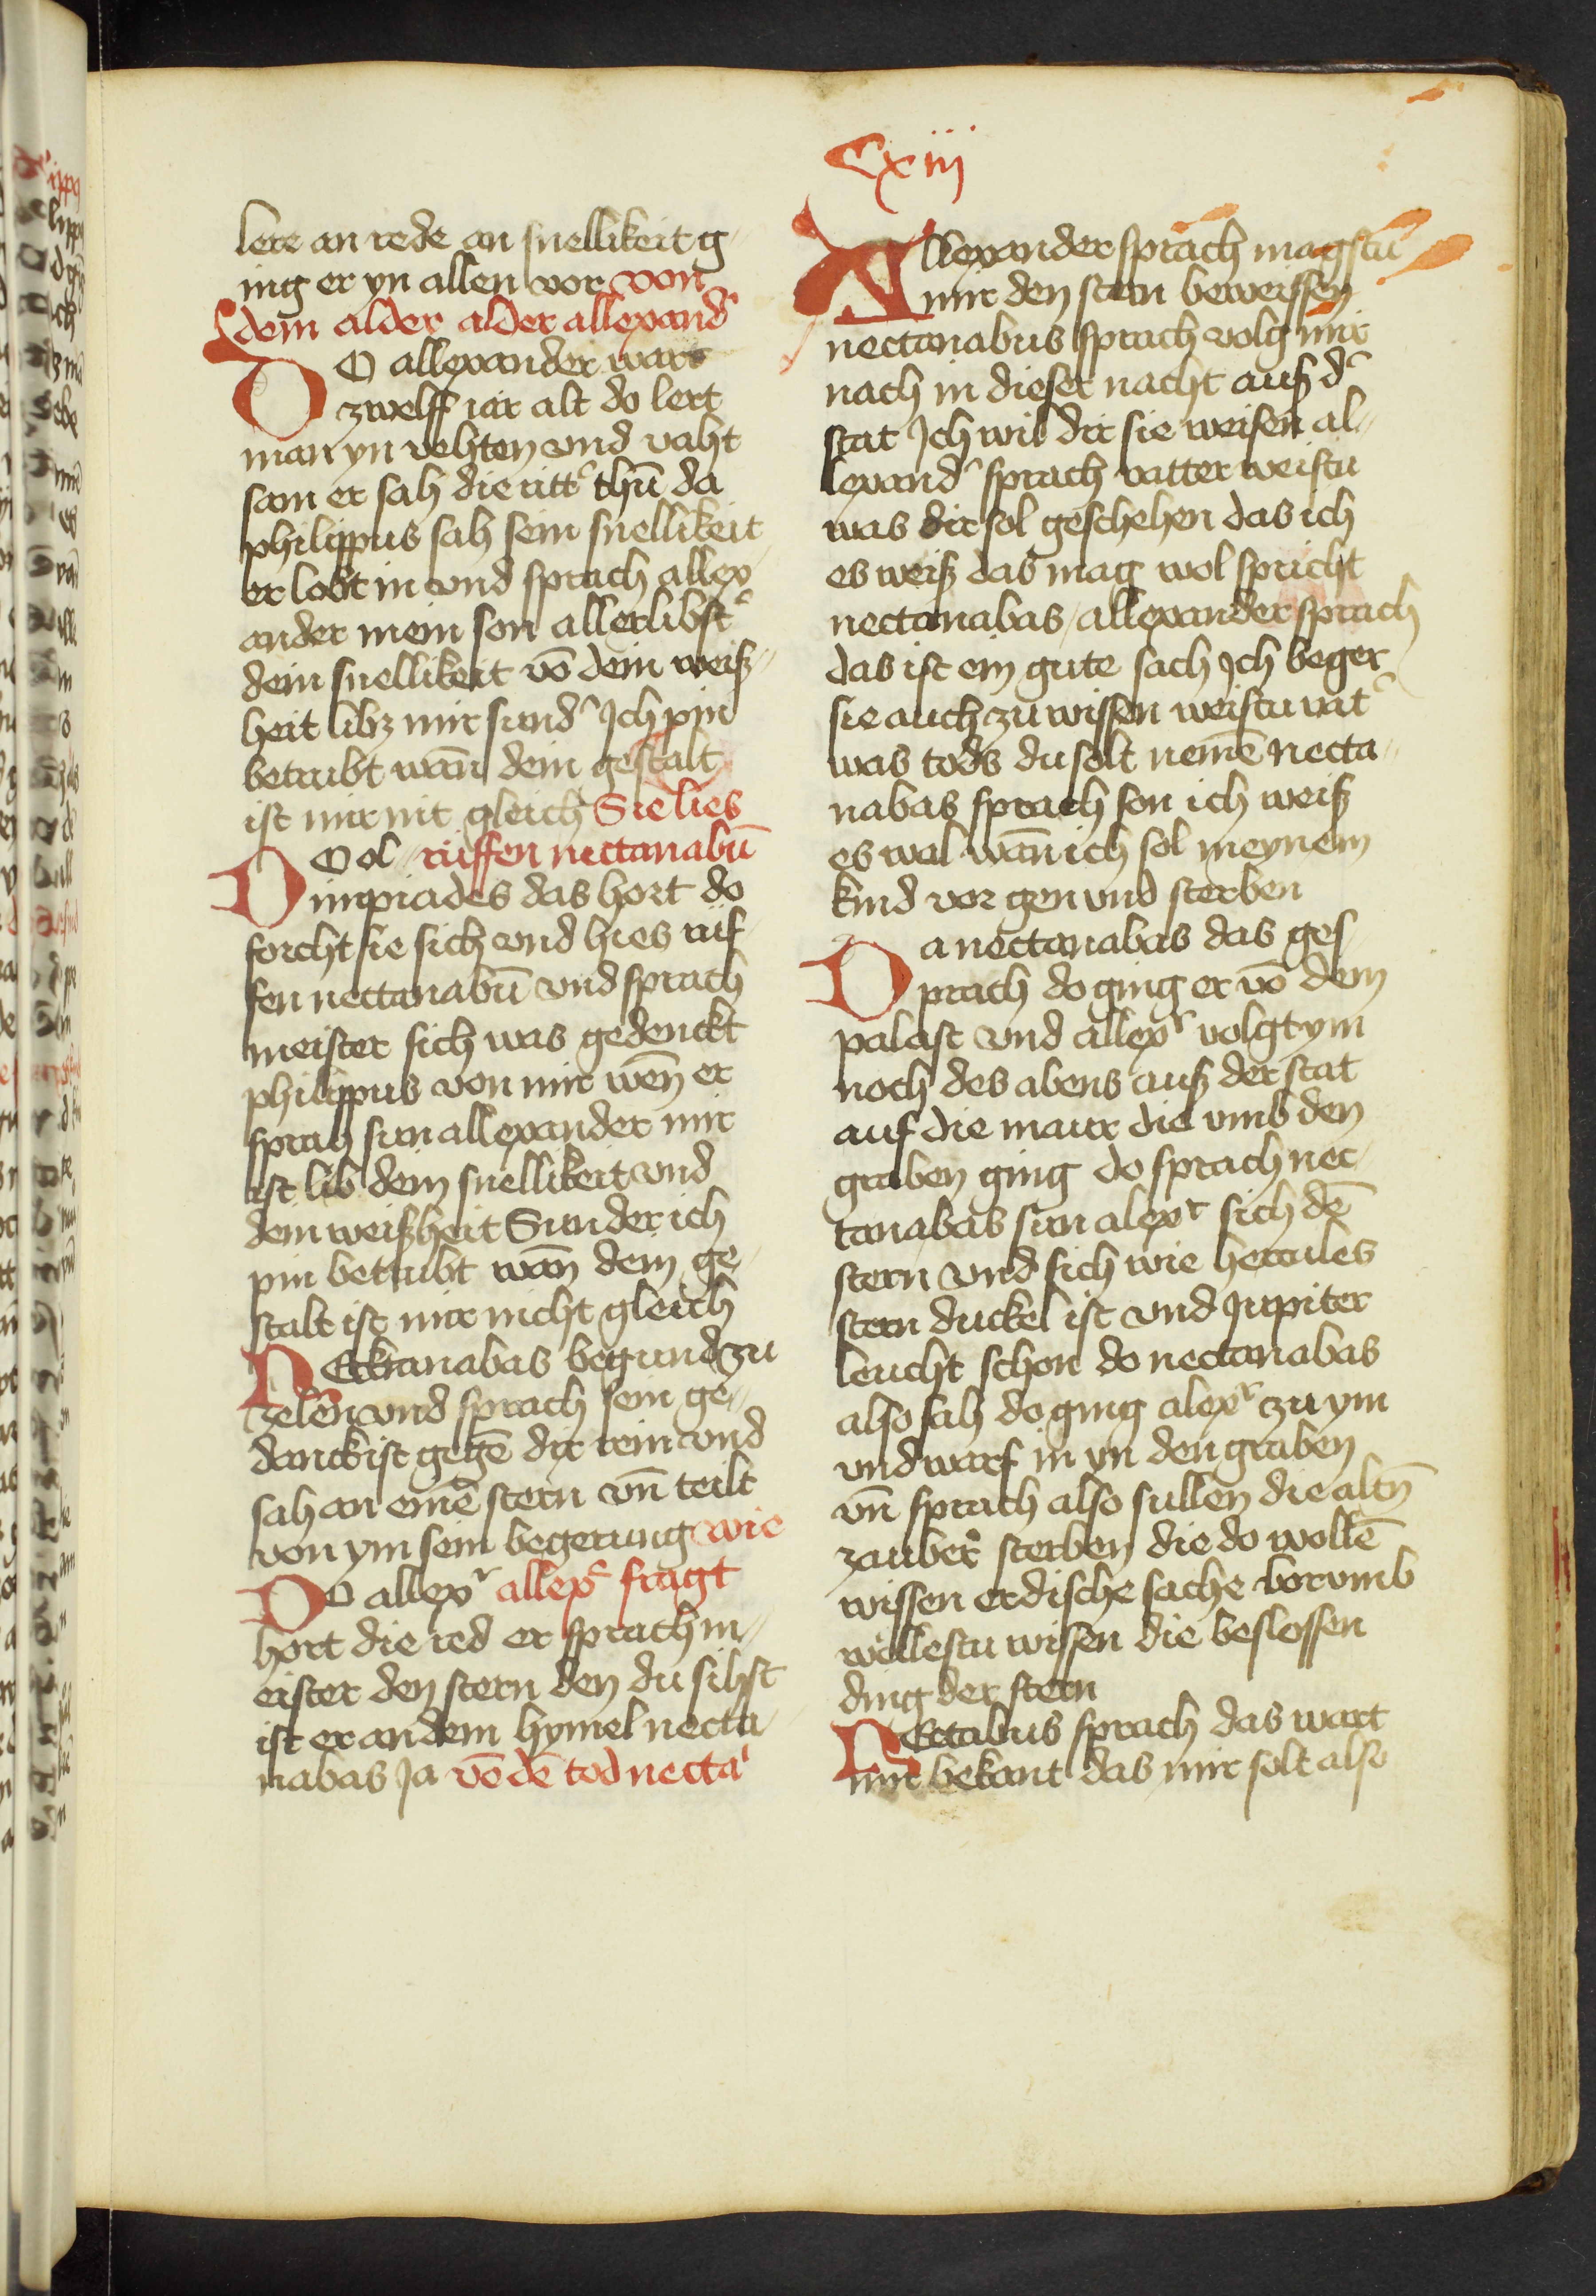 Cxiij
lere an rede an snellikeit g-
ing er yn allen vor von
dem alder alder allexand̛
DO allexander wart
zwelff iar alt do lert
man yn vehten vnd vaht
sam er sah die ritt̛ thū da
philippus sah sein snellikeit
er lobt in vnd sprach allex-
ander mein son allerlibst̛
dein snellikeit vō dein weiß-
heit libz mir sund̛ Ich pin
betrubt wañ dein gestalt
ist mir nit gleich Sie lies
DO ol- ruffen nectanabū
impiades das hort do
forcht sie sich vnd hies ruf
fen nectanabū vnd sprach
meister sich was gedenckt
philippus von mir weñ er
sprah sun allexander mir
ist lib dein snellikeit vnd
dein weißheit Sunder ich
pin betrubt wañ dein ge-
stalt ist mir nicht gleich
NEcktanabas begund zu
zelen vnd sprach sein ge-
danck ist gegē dir rein vnd
sah an einē stern vñ teilt
von ym sein begerung wie
DO allex̛ allex̛ fragt
hort die red er sprach m-
eister den stern den du sihst
ist er an dem hymel necta-
nabas Ja vō dē tod necta̛
Allexander sprach magstu
mir den stern beweissen
nectanabus sprach volg mir
nach in dieser nacht auß d̛
stat Ich wil dir sie weisen al-
lexand̛ sprach vatter weistu
was dir sol geschehen das ich
es weiß das mag wol spricht
nectanabas / allexander sprach
das ist ein gute sach Ich beger
sie auch zu wissen weistu vat̛
was tods du solt nemē necta-
nabas sprach son ich weiß
es wal wañ ich sol meynem
kind vor gen vnd sterben
Da nectanabas das ges-
prach do ging er vō dem
palast vnd allex̛ volgt ym
noch des abens auß der stat
auf die maur die vmb den
graben ging do sprach nec-
tanabas sun alex̛ sich dē
stern vnd sich wie hercules
stern duckel ist vnd Jupiter
leucht schon do nectanabas
also sah do ging alex̛ zu ym
vnd warf in yn den graben
vñ sprach also sullen die altñ
zauber̛ sterben die do wollē
wissen erdische sache vorvmb
wollestu wissen die beslossen
ding der stern
NEctabus sprach das wart
mir bekant das mir solt also